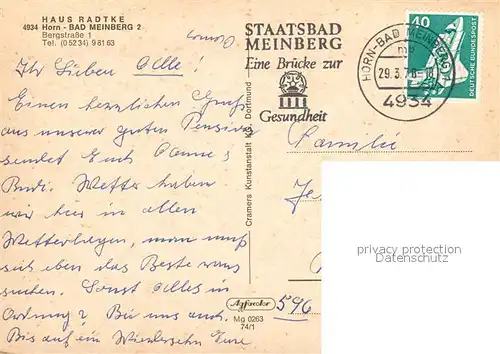 HAUS RADTKE
4934 Horn - BAD MEINBERG 2
Bergstraße 1
Tel. (05234) 98163
Ihr Lieben Alle!
Einen herzlichen Gruß
aus unserer guten Pension
sendet Euch
Wetter haben
wir hier in allen
Wetterlagen, man muß
sich eben das Beste raus
suchen. Sonst Alles in
Ordnung? Bis uns auch
Bis auf ein Wiedersehn Eure
Cramers Kunstanstalt KG, Dortmund
STAATSBAD
MEINBERG
Eine Brücke zur
Gesundheit
HORN-BAD MEINBERG
29.3.78-18
4934
40
DEUTSCHE BUNDESPOST
Familie
Je
privacy protection
Agfacolor
590
Mg 0263
74/1